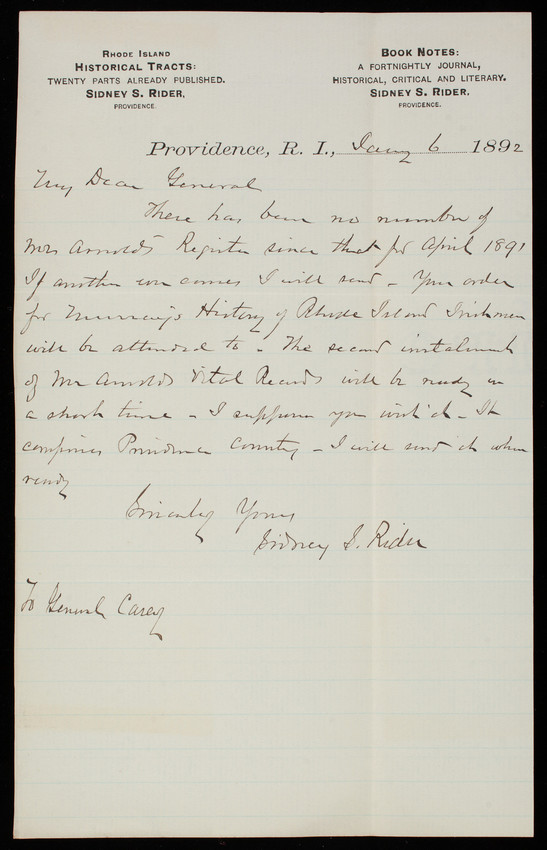 RHODE ISLAND
HISTORICAL TRACTS:
TWENTY PARTS ALREADY PUBLISHED.
SIDNEY S. RIDER,
PROVIDENCE.
BOOK NOTES:
A FORTNIGHTLY JOURNAL,
HISTORICAL, CRITICAL AND LITERARY.
SIDNEY S. RIDER,
PROVIDENCE.
Providence, R. I., Jany 6 1892
My Dear General
There has been no number of
Mr Arnold's Register since that for April 1891
If another one comes I will send - Your order
for Murray's History of Rhode Island Irishmen
will be attended to - The second instalment
of Mr Arnolds Vital Records will be ready in
a short time - I suppose you wish it - It
comprises Providence County - I will send it when
ready
Sincerely Yours
Sidney S. Rider
To General Casey